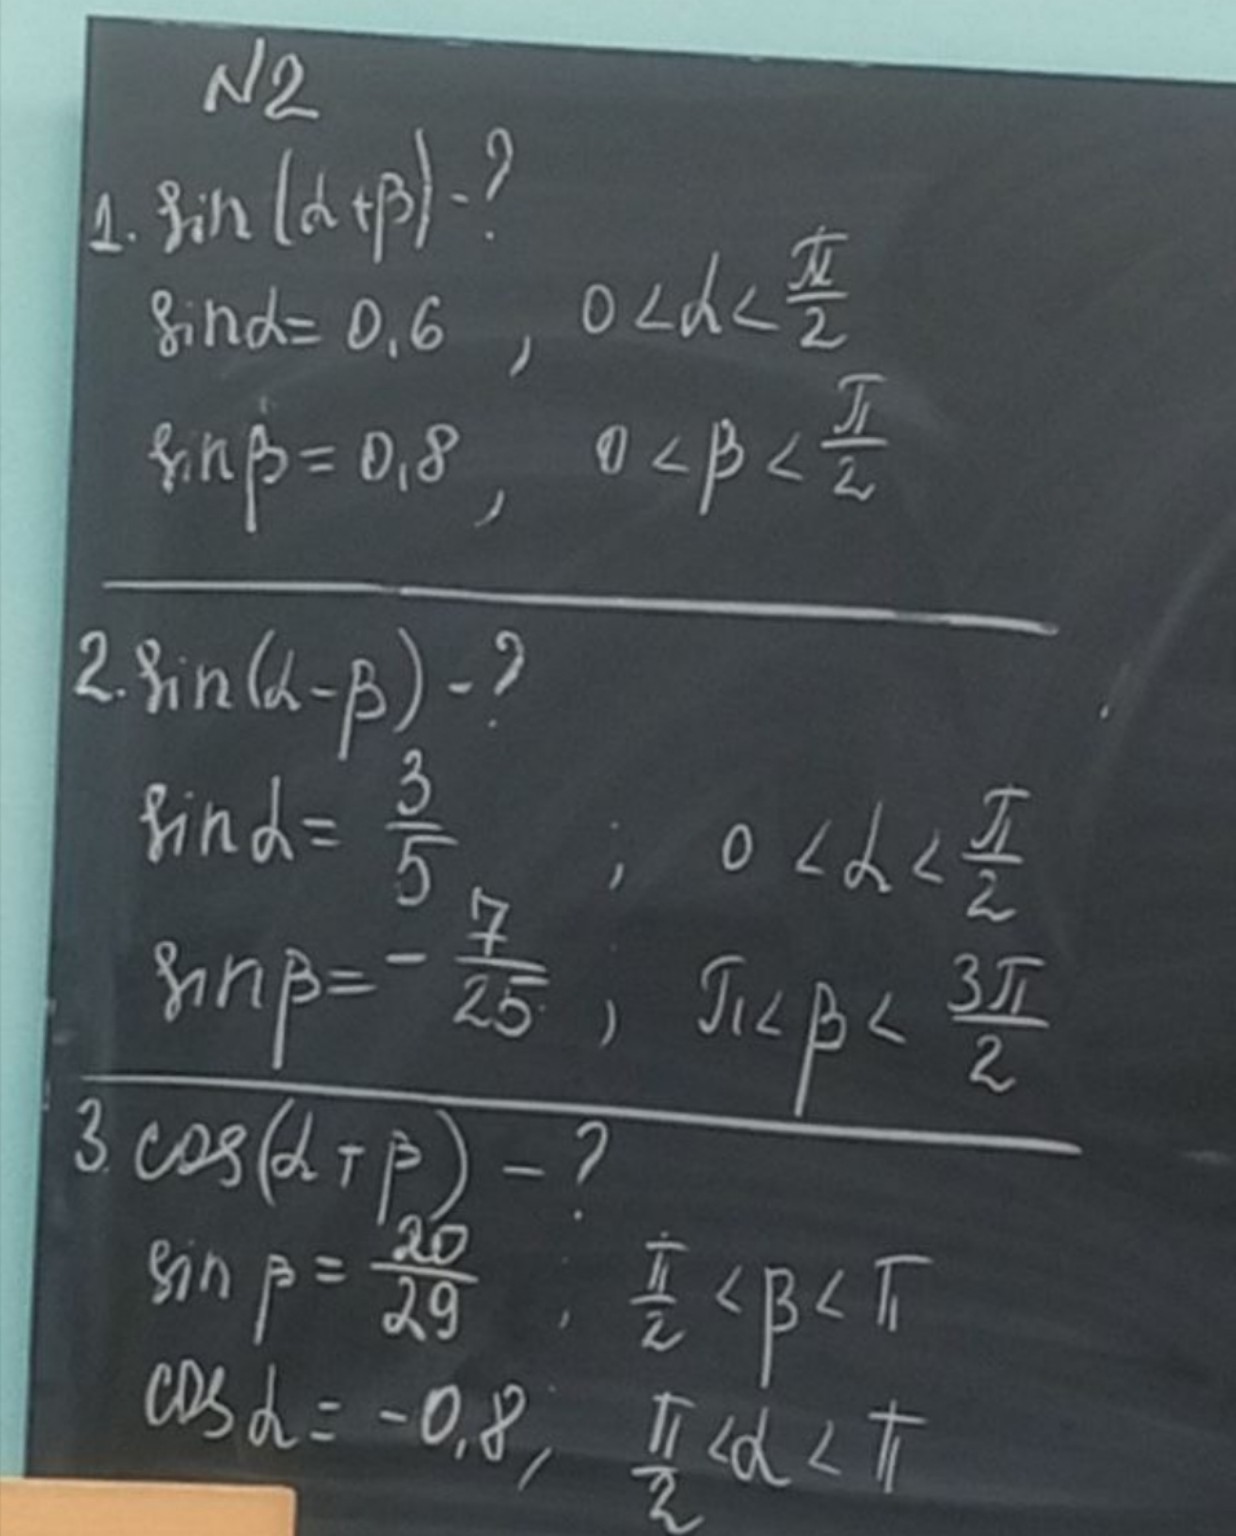 N2
1. sin(α+β) - ?
sinα = 0,6 , 0 < α < π/2
sinβ = 0,8 , 0 < β < π/2
2. sin(α-β) - ?
sinα = 3/5 ; 0 < α < π/2
sinβ = - 7/25 ; π < β < 3π/2
3. cos(α+β) - ?
sin β = 20/29 ; π/2 < β < π
cos α = -0,8 ; π/2 < α < π